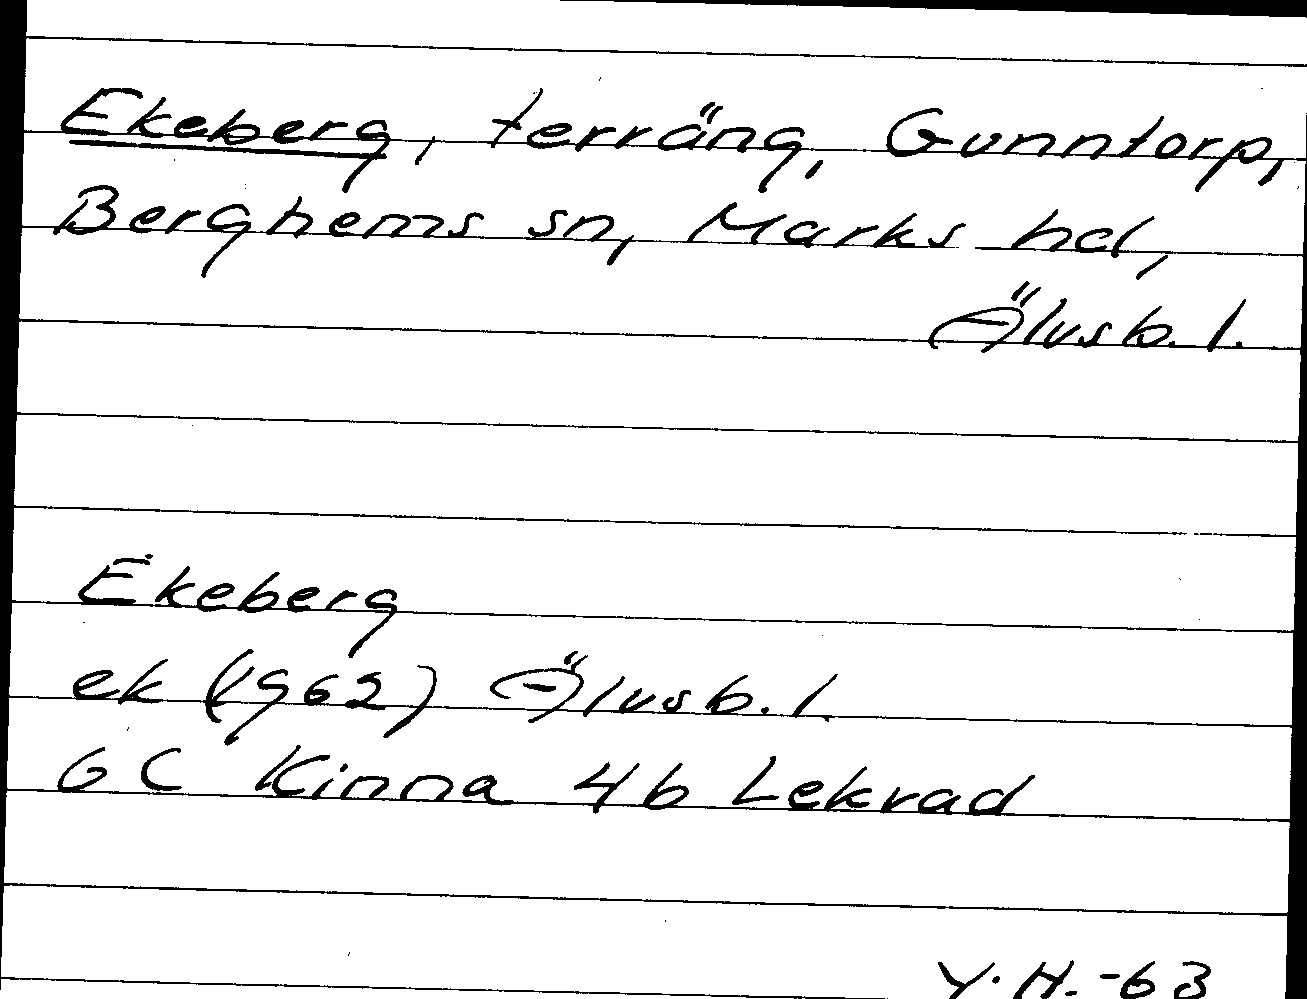 Ekeberg, terräng, Gunntorp,
Berghems sn, Marks hd,
Älvsb. l.
Ekeberg
ek (1962) Älvsb. l.
6C Kinna 4b Lekvad
Y.H.-63